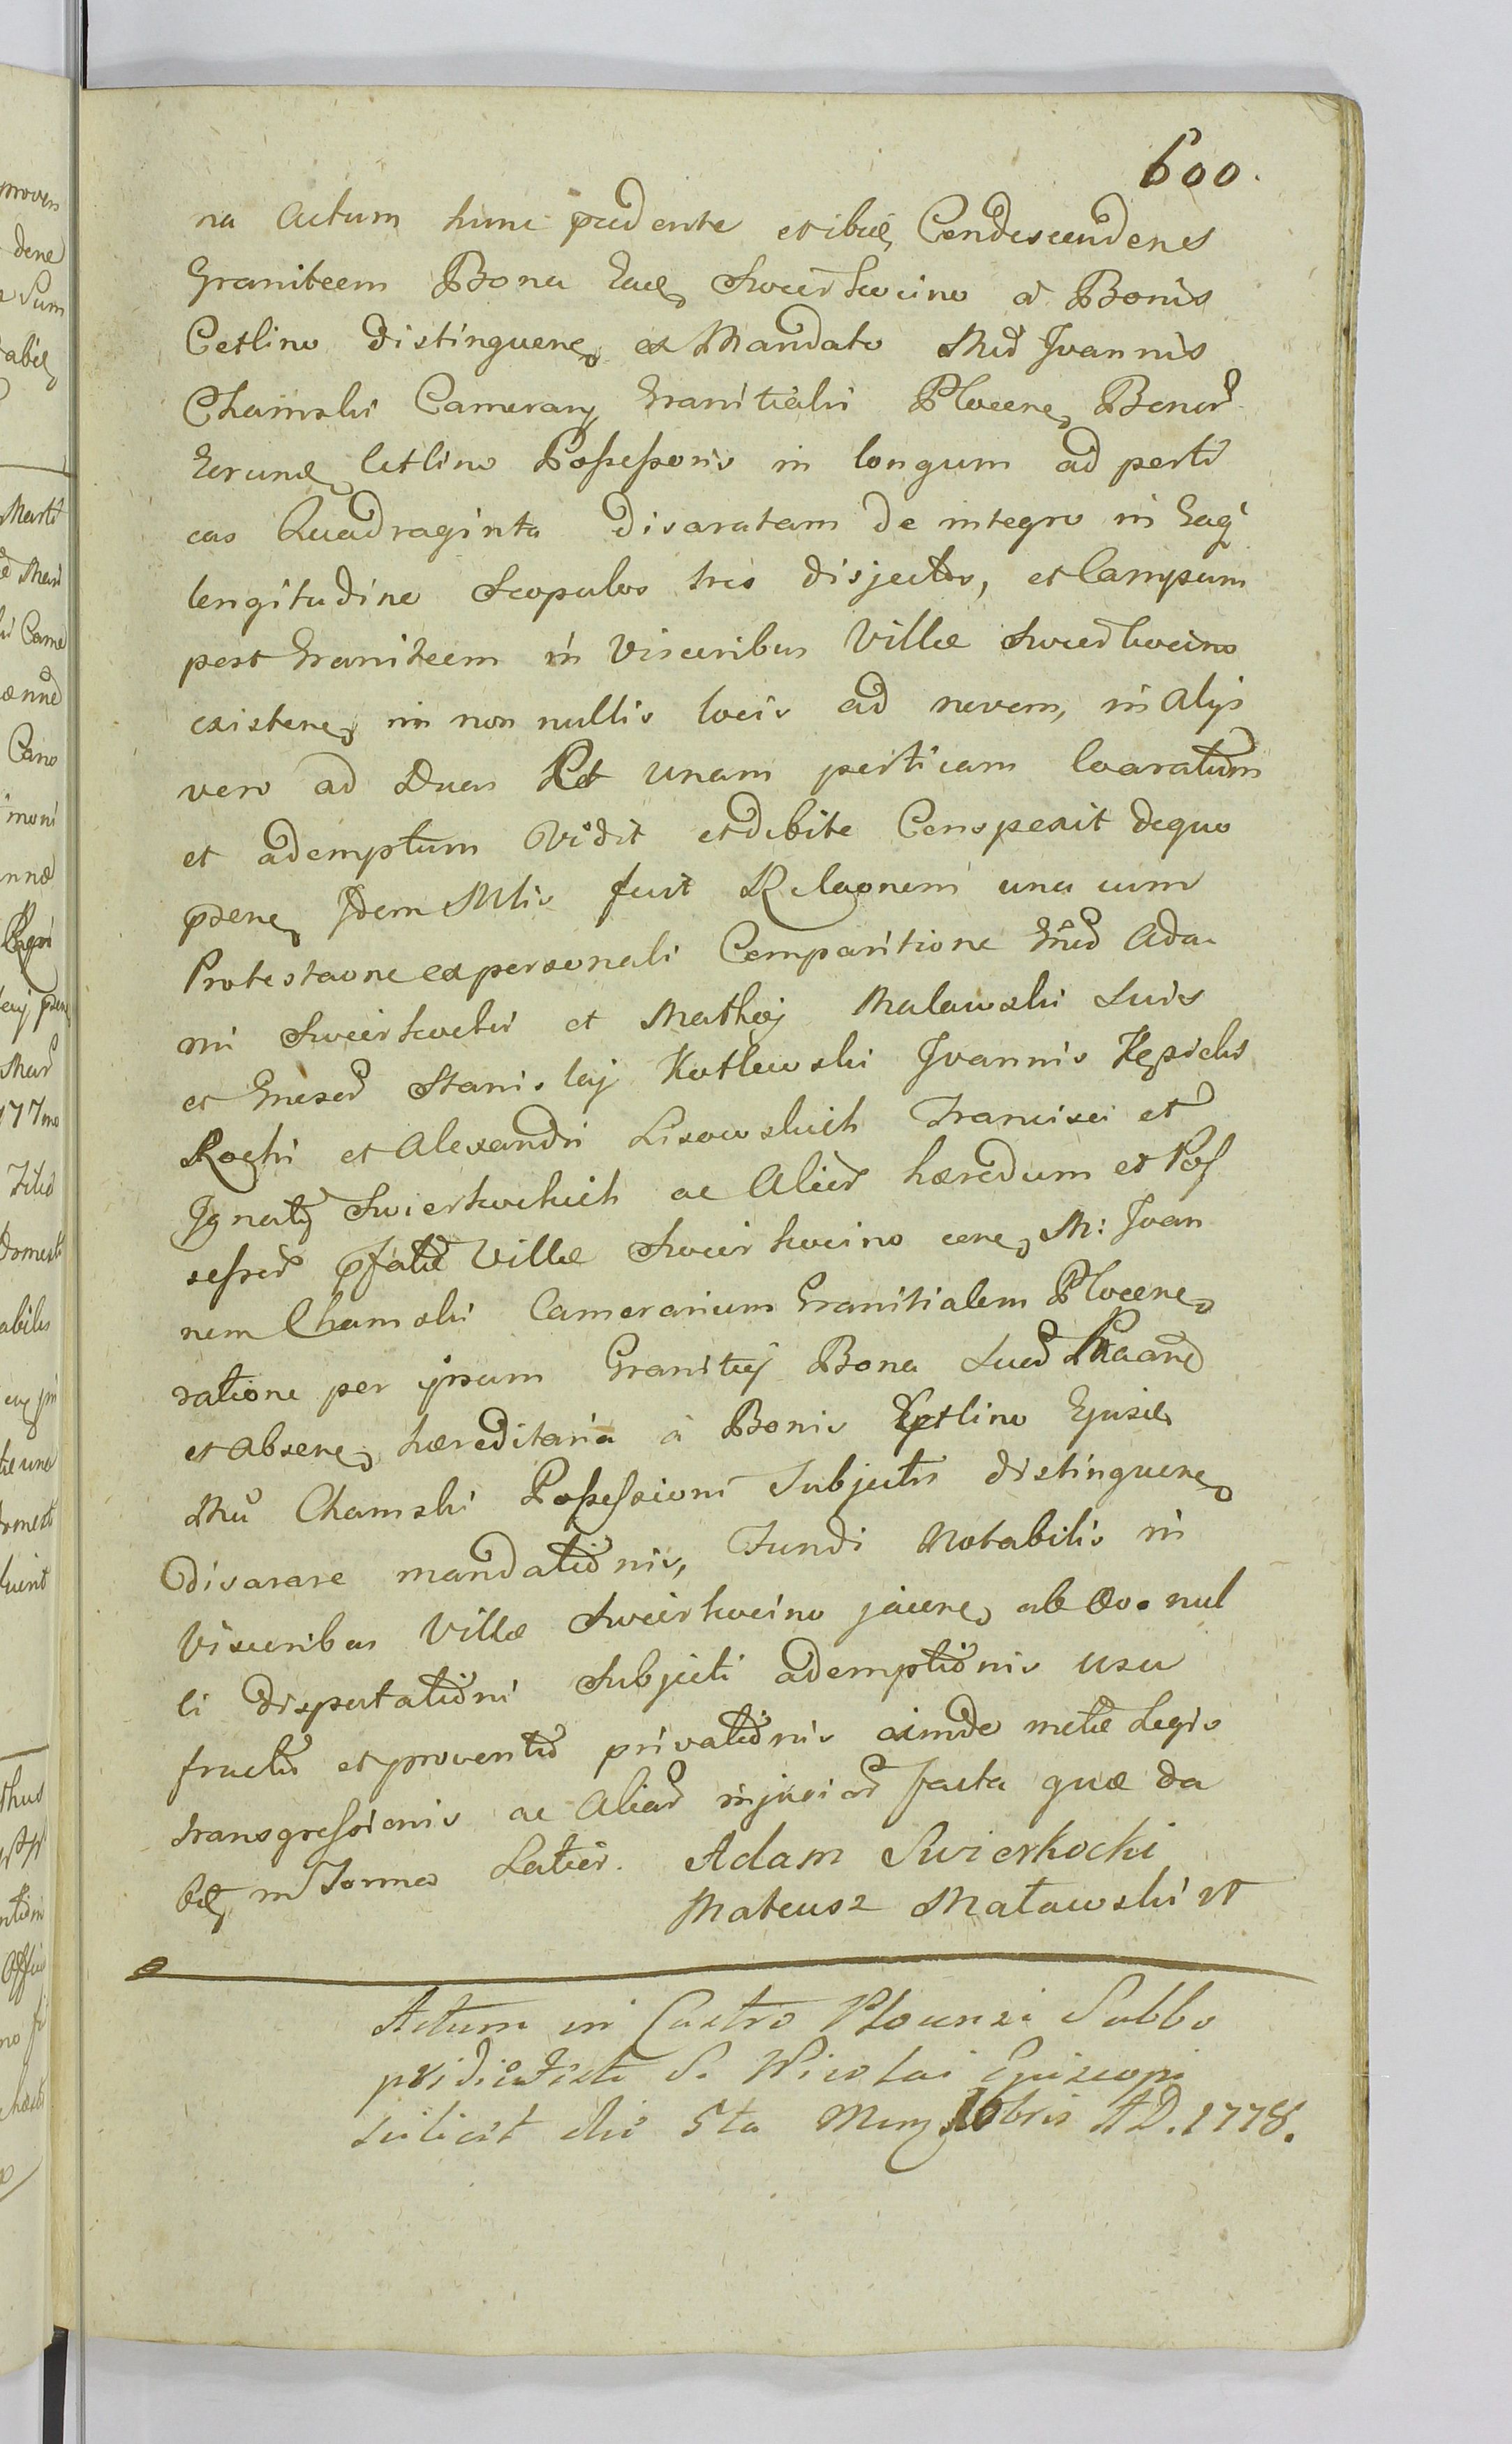 600.
na Actum hunc prudente et ibidē Condescendens
Graniteem Bona Ead Swierkocino a Bonis
Cetlino distinguene ex Mandato Mcd Joannis
Chamski Camerary Granitialis Plocene Bonor
Eorund Cetlino Possessoris in longum ad perti
cas Quadraginta disaratam de integro in Eaq
longitudine Scopulos tres disjectos, et Campum
post Graniteem in Visceribus Villæ Swierkocino
existene in non nullis locis ad novem, in Alys
vero ad Duas et unam perticam Coaratum
et ademptum Vidit et debite Conspexit dequo
pdene Idem Mtis fecit Relaonem una cum
Protestaone ex personali Comparitione Gnēd Ada
mi Swierkocki et Mathej Malawski Suis
et Gnesed Stanislaj Kotlewski Joannis Kępicki
Rochi et Alexandri Lisowskich Francisci et
Ignaty Swierkockich ac Alior hæredum et Pos
sessor pfatæ Villæ Swierkocino cone M: Joan
nem Chamski Camerarium Granitialem Plocene
ratione per ipsum Granitiej Bona Suor Praane
et Absene hæreditaria a Bonis Cetlino Ejusd
Mci Chamski Possessioni Subjectis distinguene
disarare mandationis, Fundi Notabilis in
Visceribus Villæ Swierkocino jacene ab Ævo nul
li disputationi Subjecti ademptionis usu
fructu et proventu privationis exinde metæ Legis
transgressionis ac Aliar injuriar facta quæ da
bit in Forma Latior. Adam Swierkocki
Mateusz Maławski
Actum in Castro Plocensi Sabbo
pridie Festi S. Nicolai Episcopi
scilicet die 5ta Mens 10bris AD. 1778.